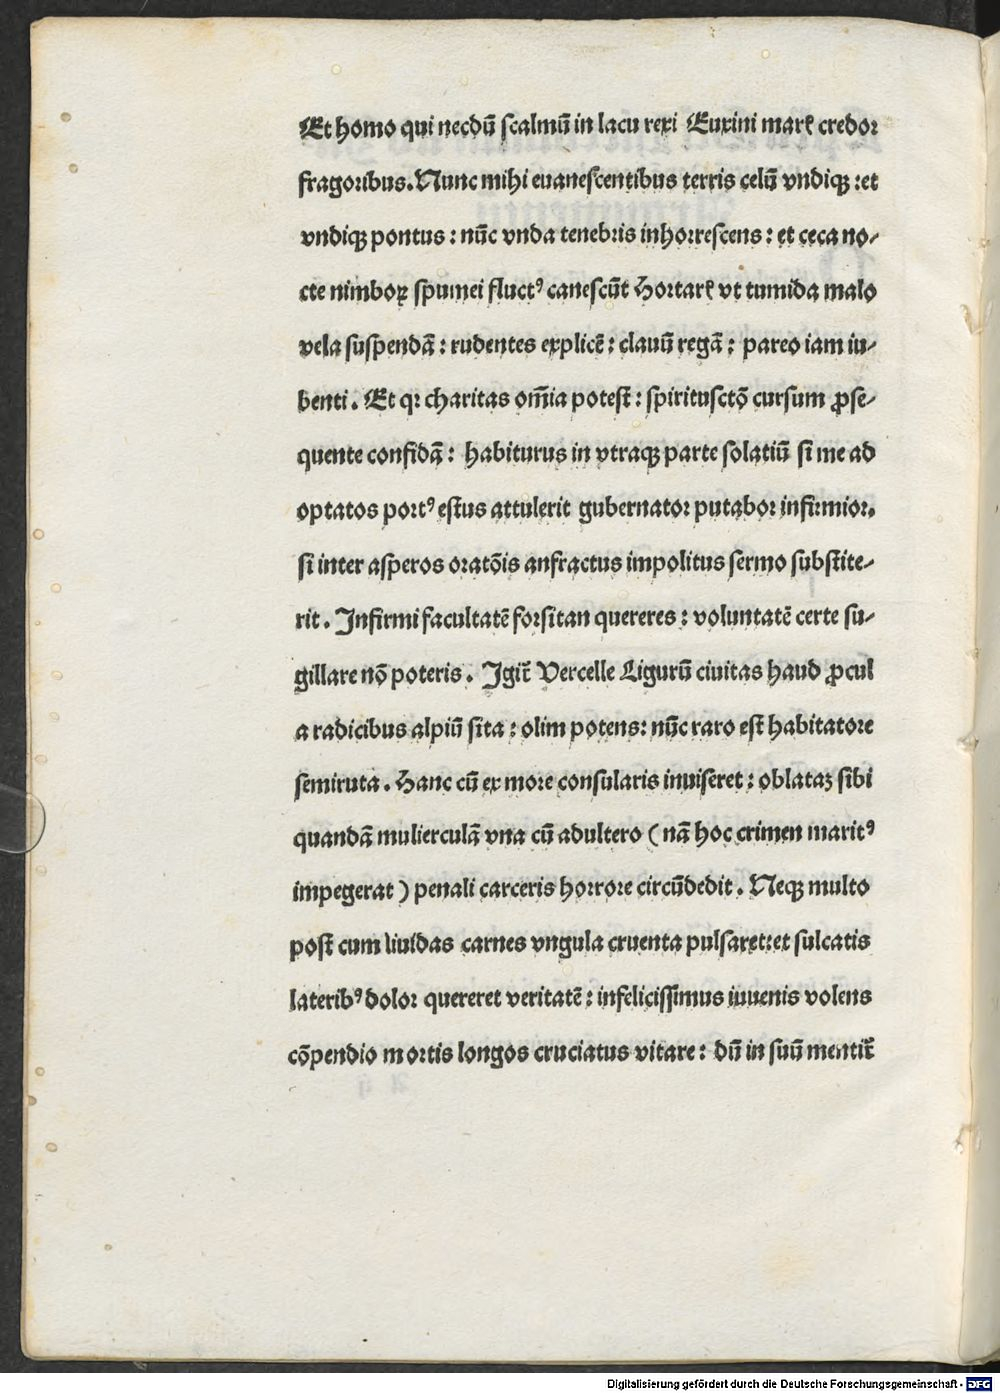 Et homo qui necdū scalmū in lacu rexi Euxini marꝭ credor
fragoribus. Nunc mihi euanescentibus terris celū vndiqꝫ : et
vndiqꝫ pontus : nūc vnda tenebris inhorrescens : et ceca no⸗
cte nimboꝝ spumei fluctꝰ canescūt Hortarꝭ vt tumida malo
vela suspendā : rudentes explicē : clauū regā : pareo iam iu⸗
benti . Et qꝛ charitas om̄ia potest : spiritusctō cursum ꝓse⸗
quente confidā : habiturus in vtraqꝫ parte solatiū si me ad
optatos portꝰ estus attulerit gubernator putabor infirmior.
si inter asperos oratōis anfractus impolitus sermo substite⸗
rit . Infirmi facultatē forsitan quereres : voluntatē certe su⸗
gillare nō poteris . Igit̄ Vercelle Ligurū ciuitas haud ꝓcul
a radicibus alpiū sita : olim potens: nūc raro est habitatore
semiruta . Hanc cū ex more consularis inuiseret : oblataꝫ sibi
quandā mulierculā vna cū adultero ( nā hoc crimen maritꝰ
impegerat ) penali carceris horrore circūdedit . Neqꝫ multo
post cum liuidas carnes vngula cruenta pulsaret:et sulcatis
lateribꝰ dolor quereret veritatē : infelicissimus iuuenis volens
cōpendio mortis longos cruciatus vitare : dū in suū mentit̄
Digitalisierung gefördert durch die Deutsche Forschungsgemeinschaft - DFG